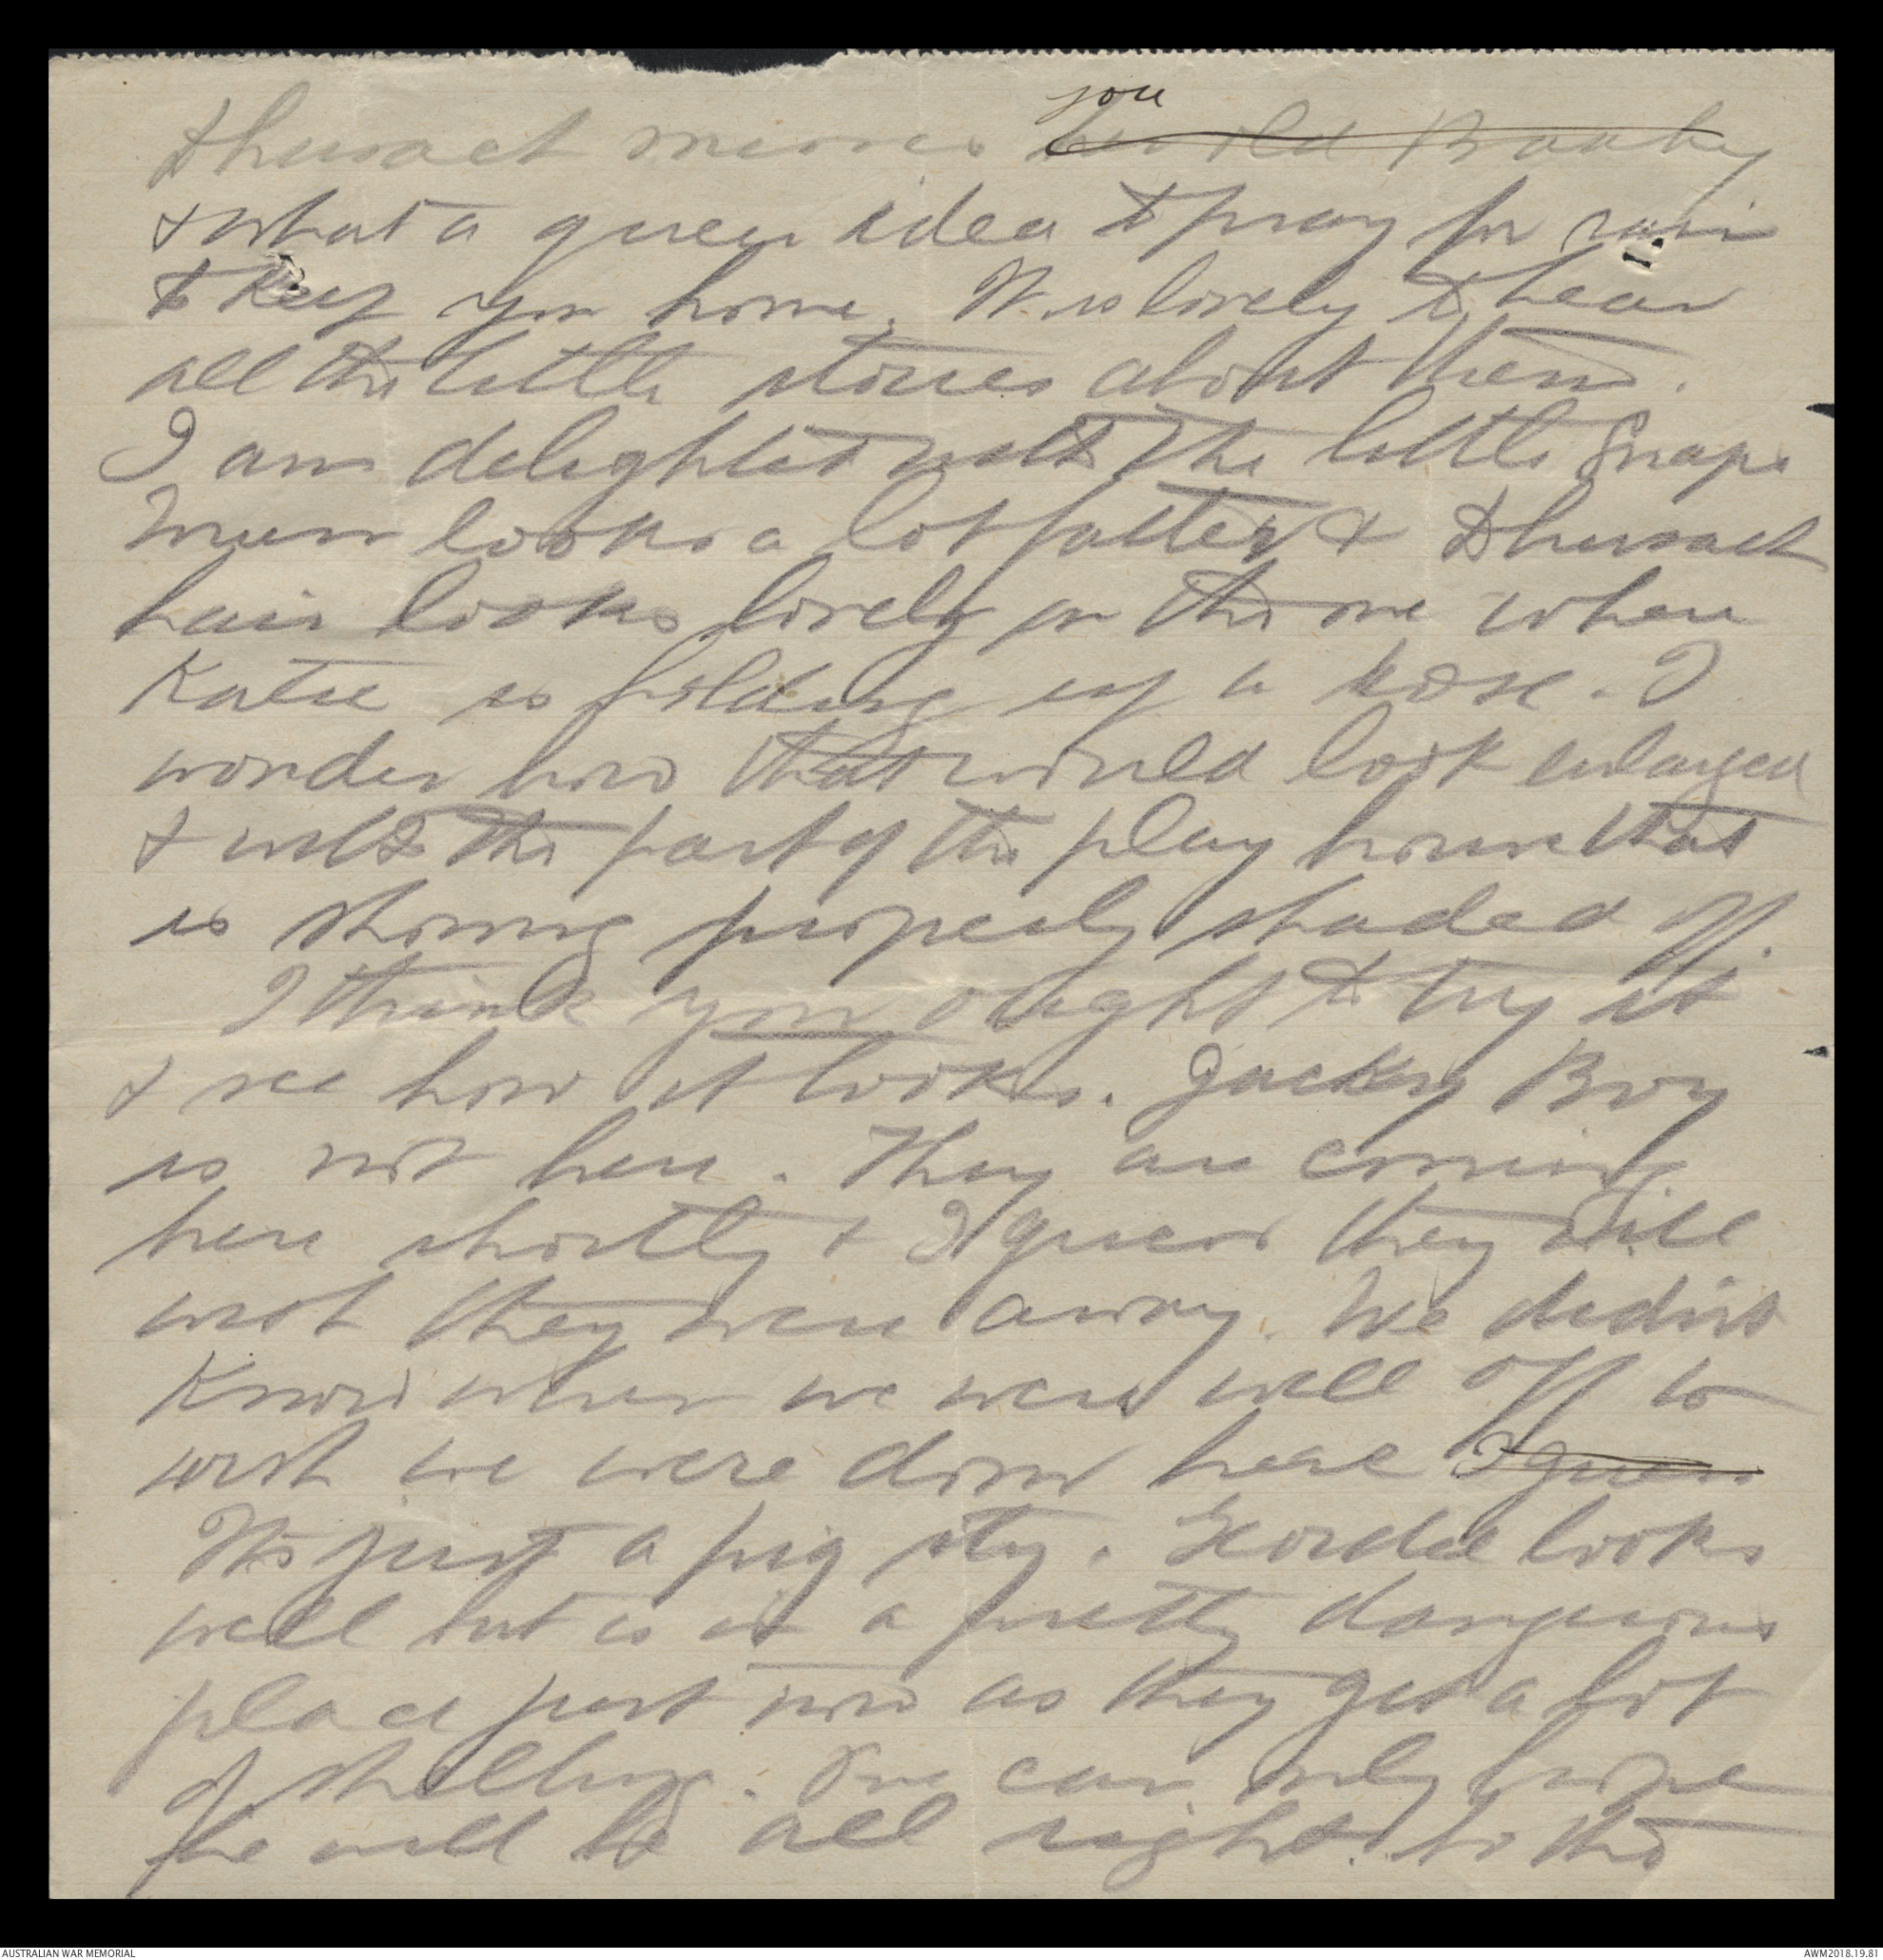 Dhusact misses you her old Baaky
& what a queer idea to pray for rain
to keep you home. It is lovely to hear
all the little stories about them.
I am delighted with the little snaps
Mum looks a lot fatter &
hair looks lovely on the one where
Katie is holding up a hose. I
wonder how that would look enlarged
& with the part of the play house that
is showing properly shaded off.
I think you ought to try it
& see how it looks. Jacky Boy
is not here. They are coming
here shortly & I guess they will
wish they were away. We didnt
know when we were well off to
wish we were down here I guess
Its just a pig sty. Geordie looks
well but is in a pretty dangerous
place just now as they get a lot
of shelling. One can only hope
he will be all right. In the
AUSTRALIAN WAR MEMORIAL
AWM2018.19.81